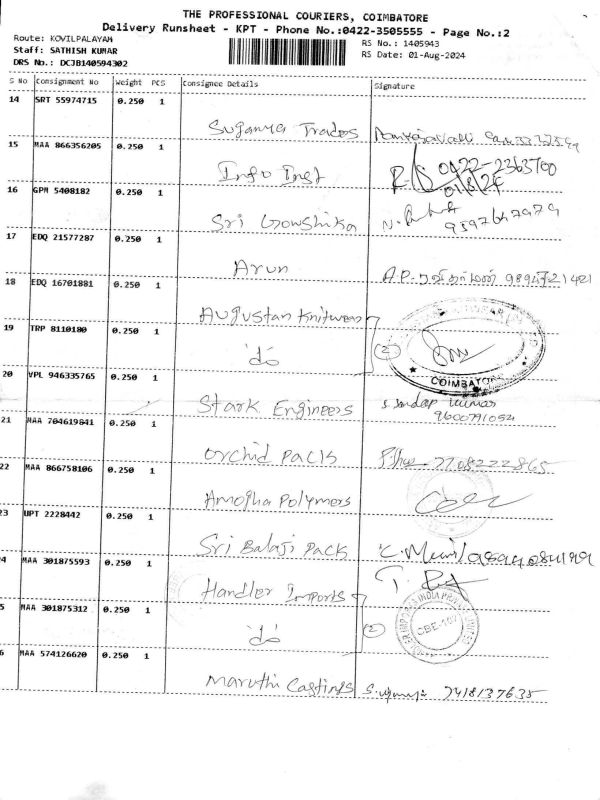 THE PROFESSIONAL COURIERS, COIMBATORE
Delivery Runsheet - KPT - Phone No.:0422-3505555 - Page No.:2
Route: KOVILPALAYAM
Staff: SATHISH KUMAR
DRS No.: DCJB140594302
RS No.: 1405943
RS Date: 01-Aug-2024
S No Consignment No Weight PCS Consignee Details Signature
14 SRT 55974715 0.250 1
Suganya Traders
15 MAA 866356205 0.250 1
Info Inst 0422-2363700
01/8/24
16 GPM 5408182 0.250 1
Sri Gowshika
17 EDQ 21577287 0.250 1
Arun A.P.
18 EDQ 16701881 0.250 1
Augustan Knitwear
19 TRP 8110180 0.250 1
do (2)
COIMBATORE
20 VPL 946335765 0.250 1
Stark Engineers S. Sandeep Kumar
9600791054
21 MAA 704619841 0.250 1
Orchid Pack 7708222865
22 MAA 866758106 0.250 1
Amogha Polymers
23 UPT 2228442 0.250 1
Sri Balaji Pack
4 MAA 301875593 0.250 1
Handler Imports
5 MAA 301875312 0.250 1
do (2)
INDIA PRIVATE LIMITED
CBE-107
6 MAA 574126620 0.250 1
Maruthi Castings 7418137635